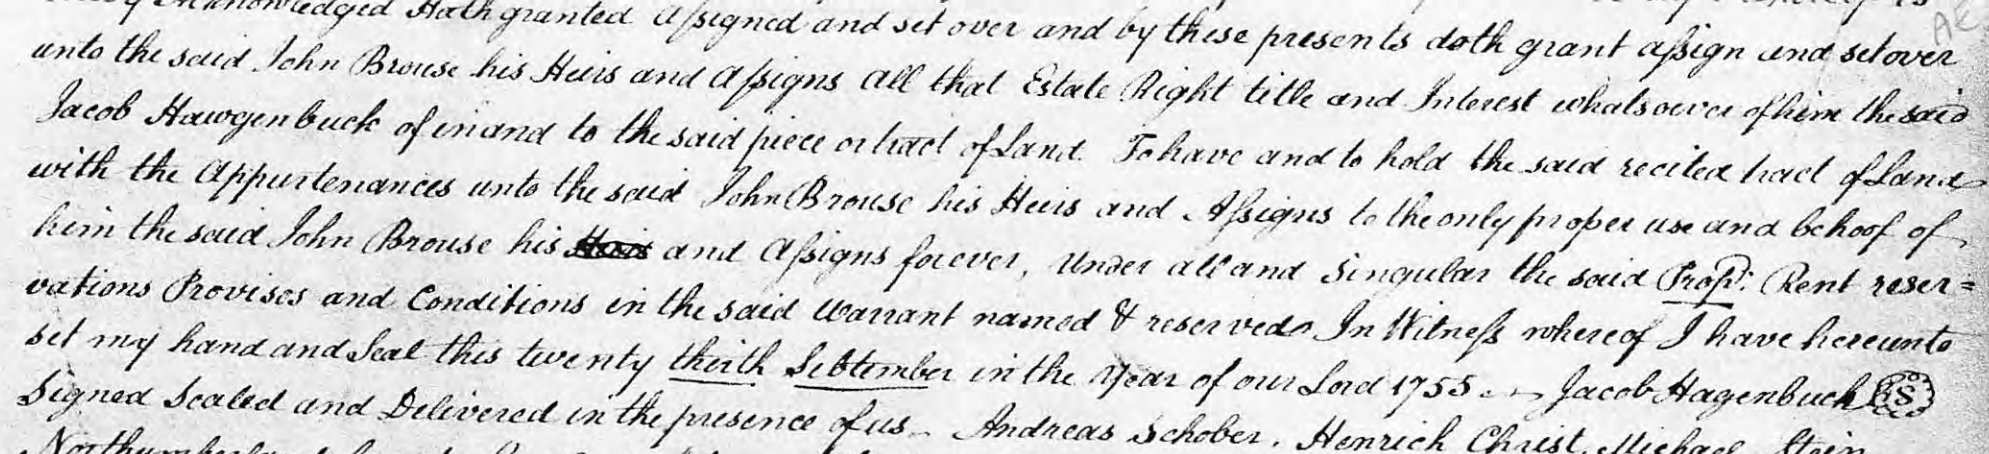 Acknowledged Hath granted Assigned and set over and by these presents doth grant assign and set over
unto the said John Brouse his Heirs and Assigns all that Estate Right title and Interest whatsoever of him the said
Jacob Hawgenbuck of in and to the said piece or tract of Land. To have and to hold the said recited tract of Land
with the Appurtenances unto the said John Brouse his Heirs and Assigns to the only proper use and behoof of
him the said John Brouse his Heirs and Assigns forever, Under all and Singular the said Prop: Rent reser=
vations Provisos and Conditions in the said Warrant named & reserved In Witness whereof I have hereunto
set my hand and Seal this twenty thirth Sebtember in the Year of our Lord 1755 — Jacob Hagenbuch LS
Signed Sealed and Delivered in the presence of us — Andreas Schober. Henrich Christ. Michael Stein